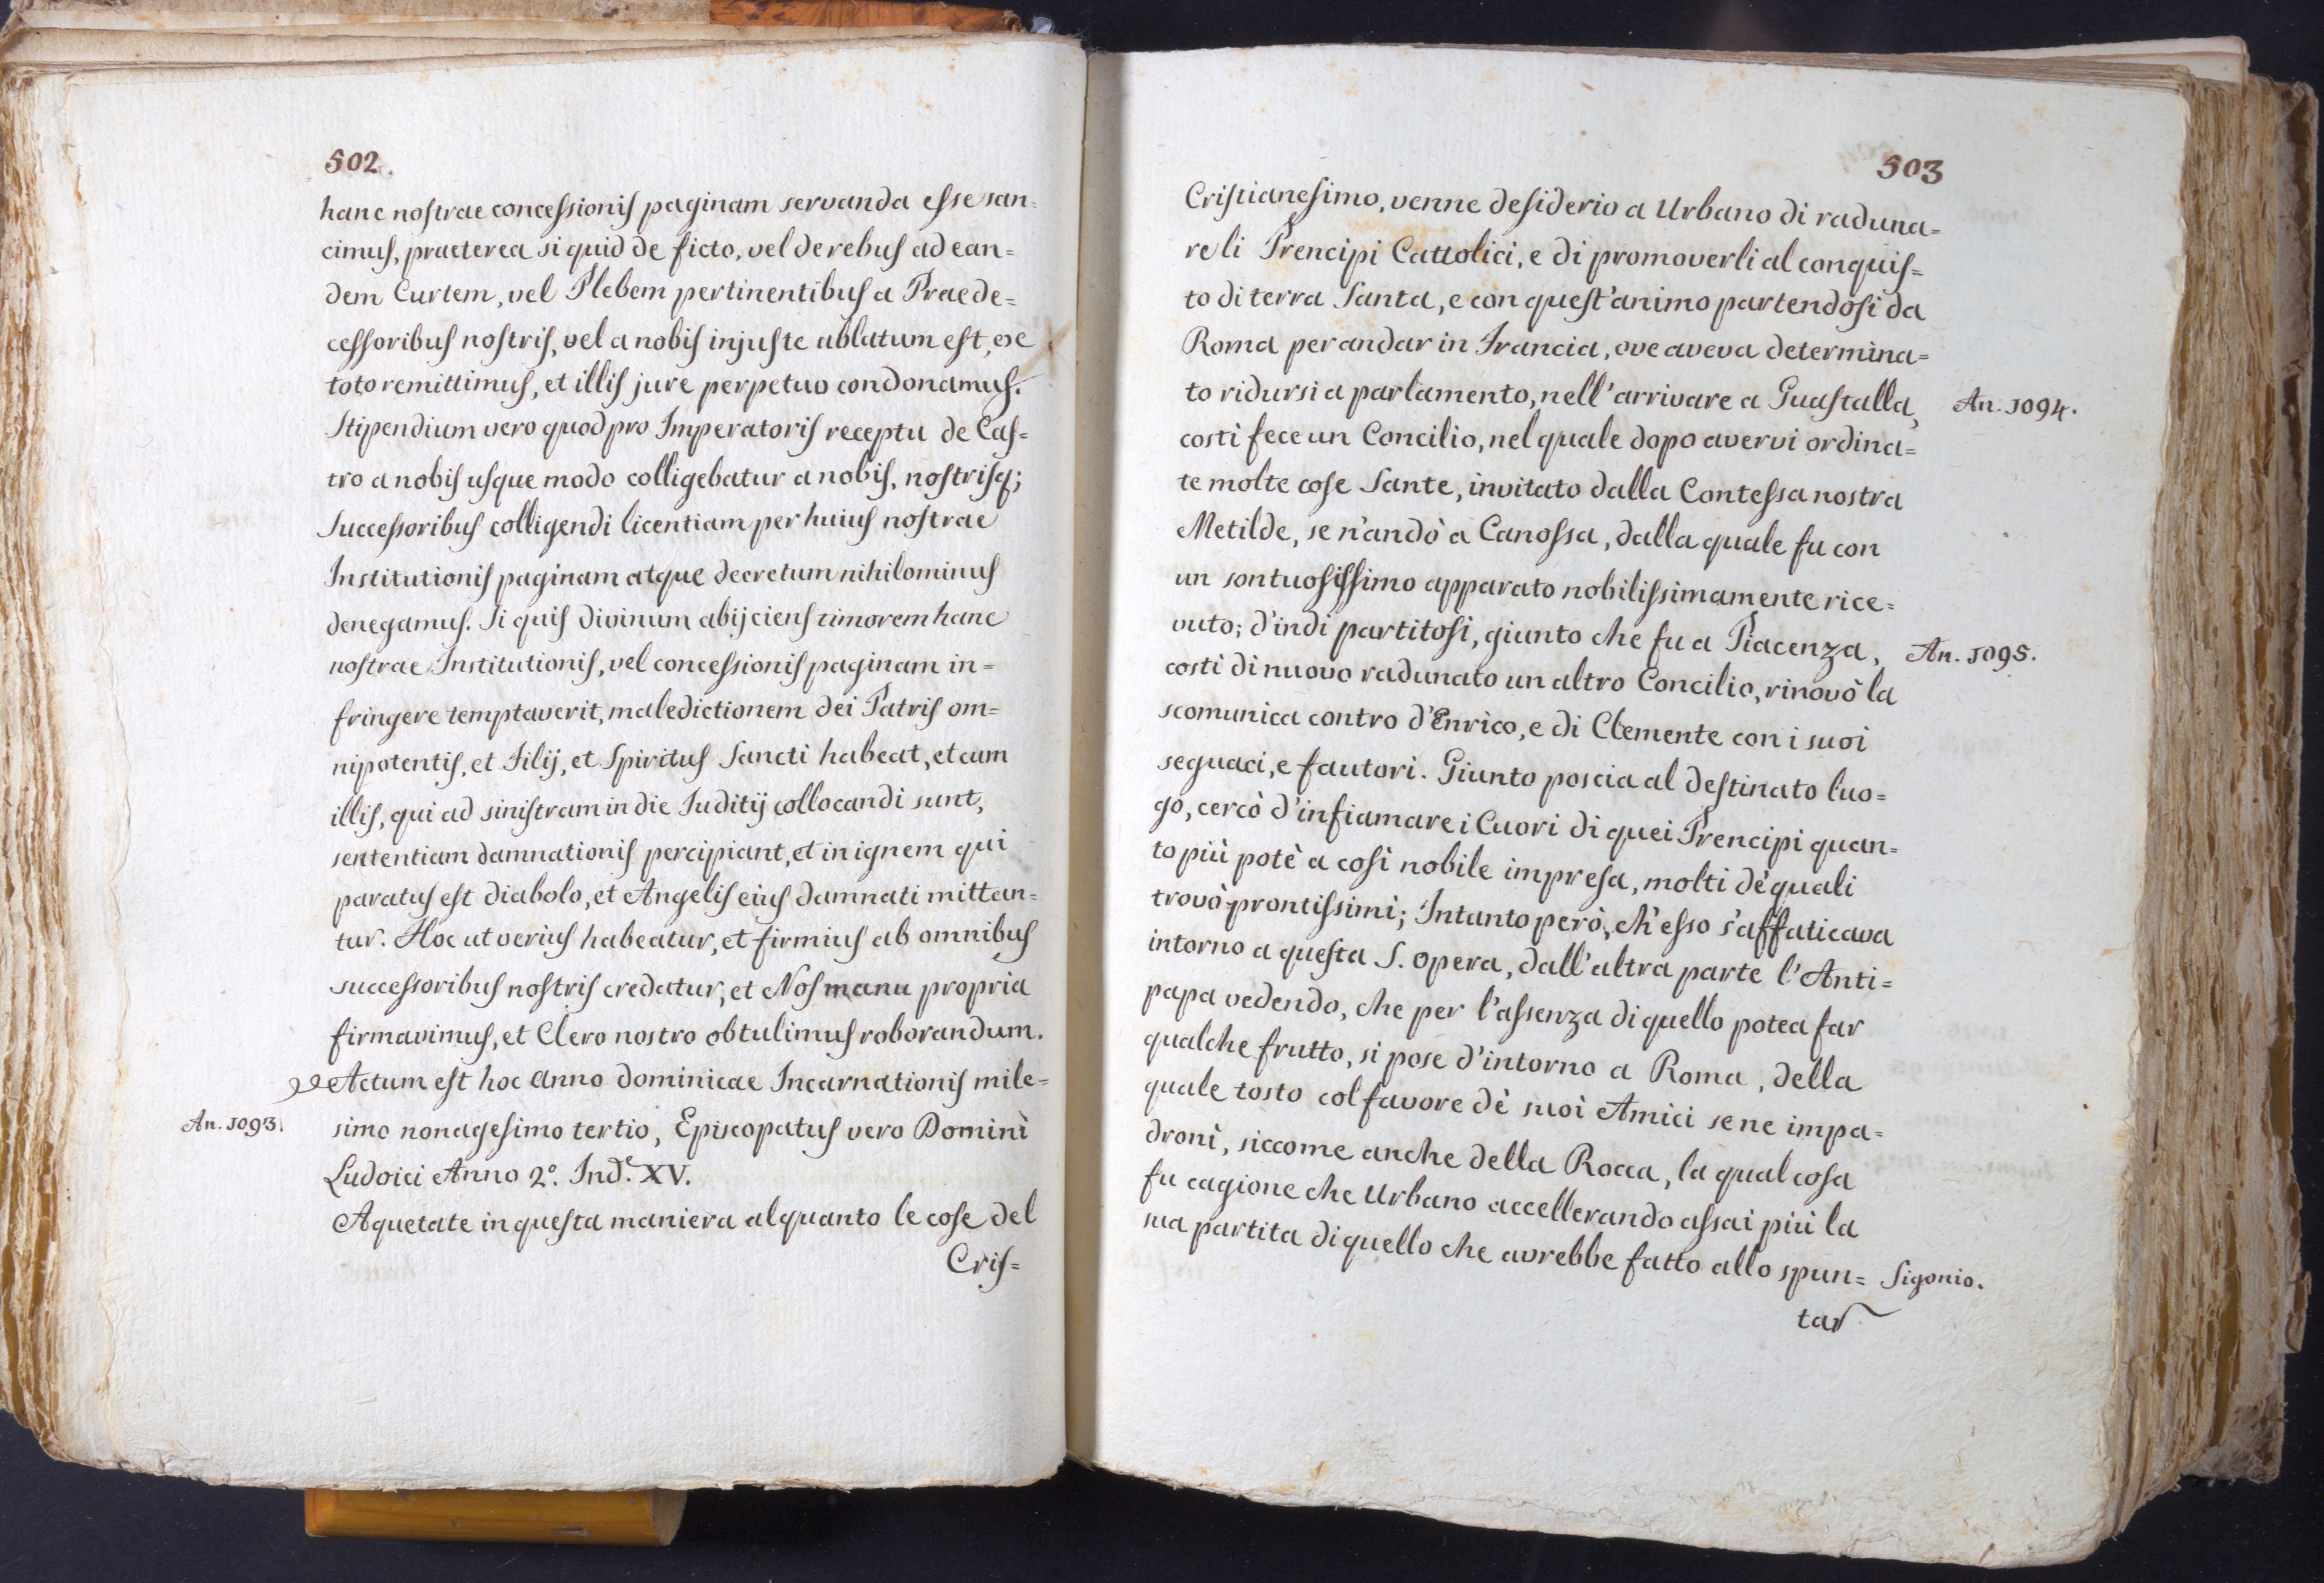 502.
hanc nostrae concessionis paginam servanda esse san=
cimus, praeterea si quid de ficto, vel de rebus ad ean=
dem Curtem, vel Plebem pertinentibus a Praede=
cessoribus nostris, vel a nobis injuste ablatum est, ex
toto remittimus, et illis jure perpetuo condonamus.
Stipendium vero quod pro Imperatoris receptu de Cas=
tro a nobis usque modo colligebatur a nobis, nostrisq;
Successoribus colligendi licentiam per huius nostrae
Institutionis paginam atque decretum nihilominus
denegamus. Si quis divinum abijciens timorem hanc
nostrae Institutionis, vel concessionis paginam in=
fringere temptaverit, maledictionem dei Patris om=
nipotentis, et Filij, et Spiritus Sancti habeat, et cum
illis, qui ad sinistram in die Juditij collocandi sunt,
sententiam damnationis percipiant, et in ignem qui
paratus est diabolo, et Angelis eius damnati mittan=
tur. Hoc ut verius habeatur, et firmius ab omnibus
successoribus nostris credatur, et Nos manu propria
firmavimus, et Clero nostro obtulimus roborandum.
Actum est hoc anno dominicae Incarnationis mile=
An. 1093. simo nonagesimo tertio, Episcopatus vero Domini
Ludoici Anno 2º. Ind.e XV.
Aquetate in questa maniera alquanto le cose del
Cris=
503
Cristianesimo, venne desiderio a Urbano di raduna=
re li Prencipi Cattolici, e di promoverli al conquis=
to di terra Santa, e con quest'animo partendosi da
Roma per andar in Francia, ove aveva determina=
to ridursi a parlamento, nell'arrivare a Guastalla, An. 1094.
costì fece un Concilio, nel quale dopo avervi ordina=
te molte cose Sante, invitato dalla Contessa nostra
Metilde, se n'andò a Canossa, dalla quale fu con
un sontuosissimo apparato nobilissimamente rice=
vuto; d'indi partitosi, giunto che fu a Piacenza, An. 1095.
costì di nuovo radunato un altro Concilio, rinovò la
scomunica contro d'Enrico, e di Clemente con i suoi
seguaci, e fautori. Giunto poscia al destinato luo=
go, cercò d'infiamare i Cuori di quei Prencipi quan=
to più potè a così nobile impresa, molti de' quali
trovò prontissimi; Intanto però, ch'esso s'affaticava
intorno a questa S. opera, dall'altra parte l'Anti=
papa vedendo, che per l'assenza di quello potea far
qualche frutto, si pose d'intorno a Roma, della
quale tosto col favore dè suoi Amici se ne impa=
dronì, siccome anche della Rocca, la qual cosa
fu cagione che Urbano accellerando assai più la
sua partita di quello che avrebbe fatto allo spun= Sigonio.
tar